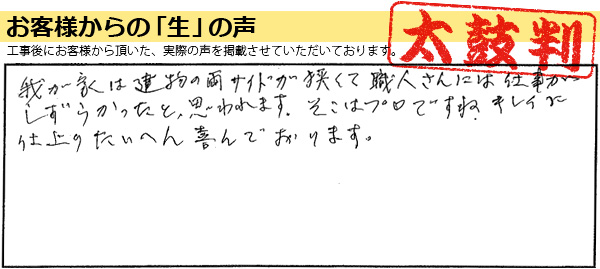 お客様からの「生」の声
工事後にお客様から頂いた、実際の声を掲載させていただいております。
太鼓判
我が家は建物の両サイドが狭くて職人さんには仕事が
しずらかったと、思われます。そこはプロですね。キレイに
仕上りたいへん喜んでおります。